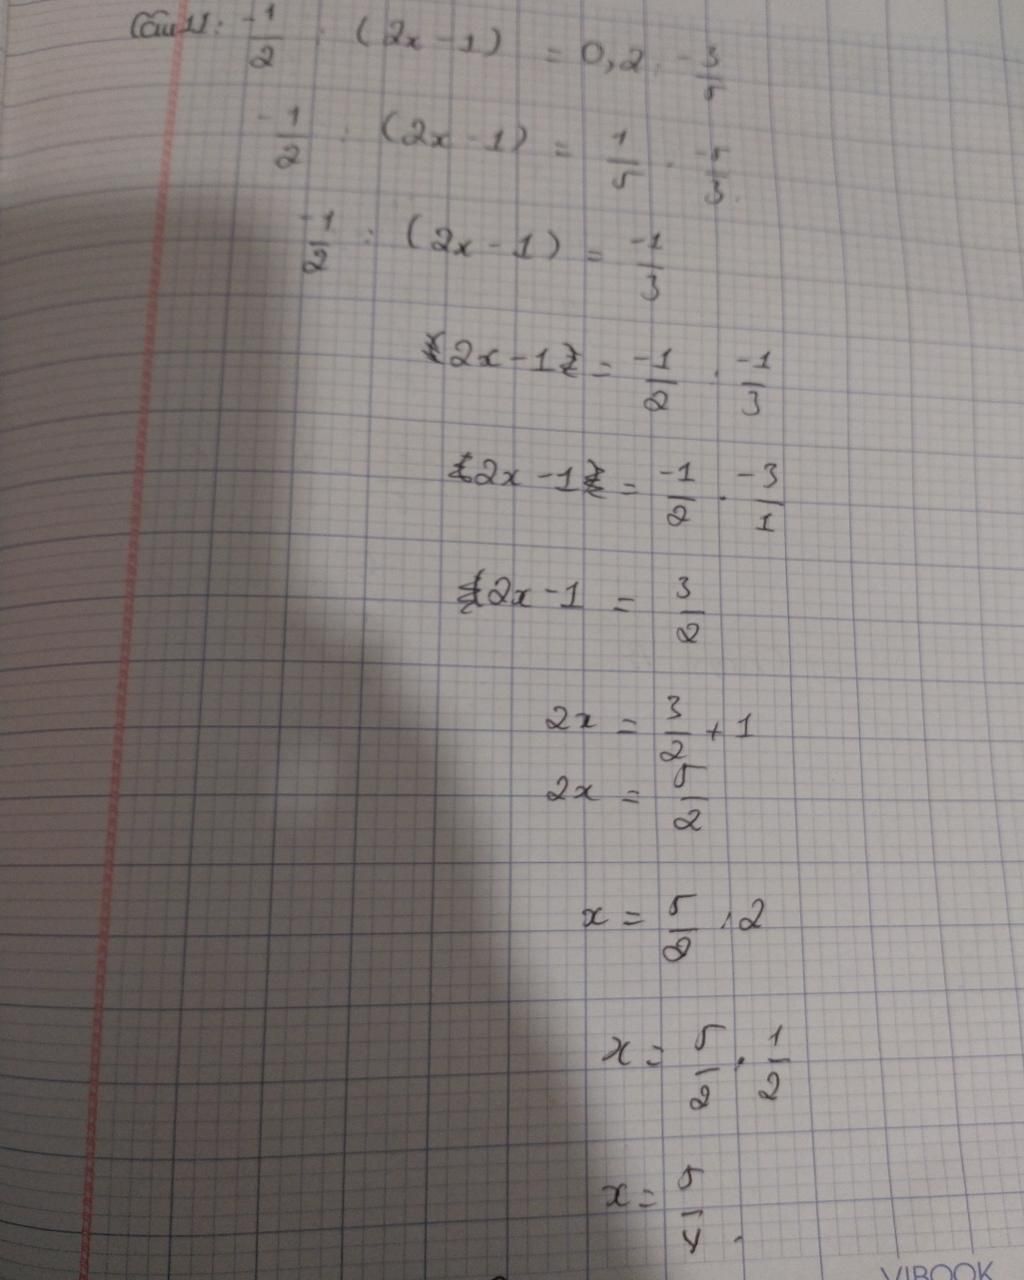 Câu 11: -1/2 : (2x - 1) = 0,2 : -3/5
-1/2 : (2x - 1) = 1/5 . -5/3
-1/2 : (2x - 1) = -1/3
2x - 1 = -1/2 : -1/3
2x - 1 = -1/2 . -3/1
2x - 1 = 3/2
2x = 3/2 + 1
2x = 5/2
x = 5/2 : 2
x = 5/2 . 1/2
x = 5/4.
VIBOOK